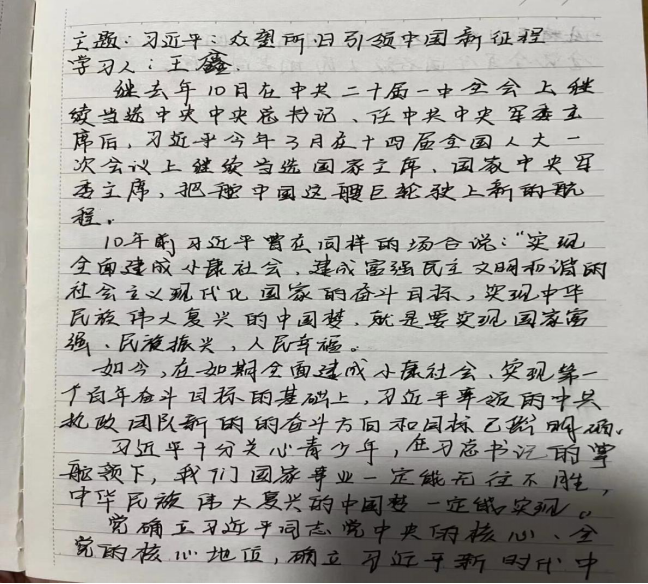 主题：习近平：众望所归引领中国新征程
学习人：王鑫
继去年10月在中共二十届一中全会上继
续当选中央中央总书记、任中共中央军委主
席后，习近平今年3月在十四届全国人大一
次会议上继续当选国家主席、国家中央军
委主席，把舵中国这艘巨轮驶上新的航
程。
10年前习近平曾在同样的场合说：“实现
全面建成小康社会、建成富强民主文明和谐的
社会主义现代化国家的奋斗目标，实现中华
民族伟大复兴的中国梦，就是要实现国家富
强、民族振兴，人民幸福。
如今，在如期全面建成小康社会、实现第一
个百年奋斗目标的基础上，习近平率领的中共
执政团队新的的奋斗方向和目标已经明确。
习近平十分关心青少年，在习总书记的掌
舵领下，我们国家事业一定能无往不胜，
中华民族伟大复兴的中国梦一定能实现。
党确立习近平同志党中央的核心、全
党的核心地位，确立习近平新时代中